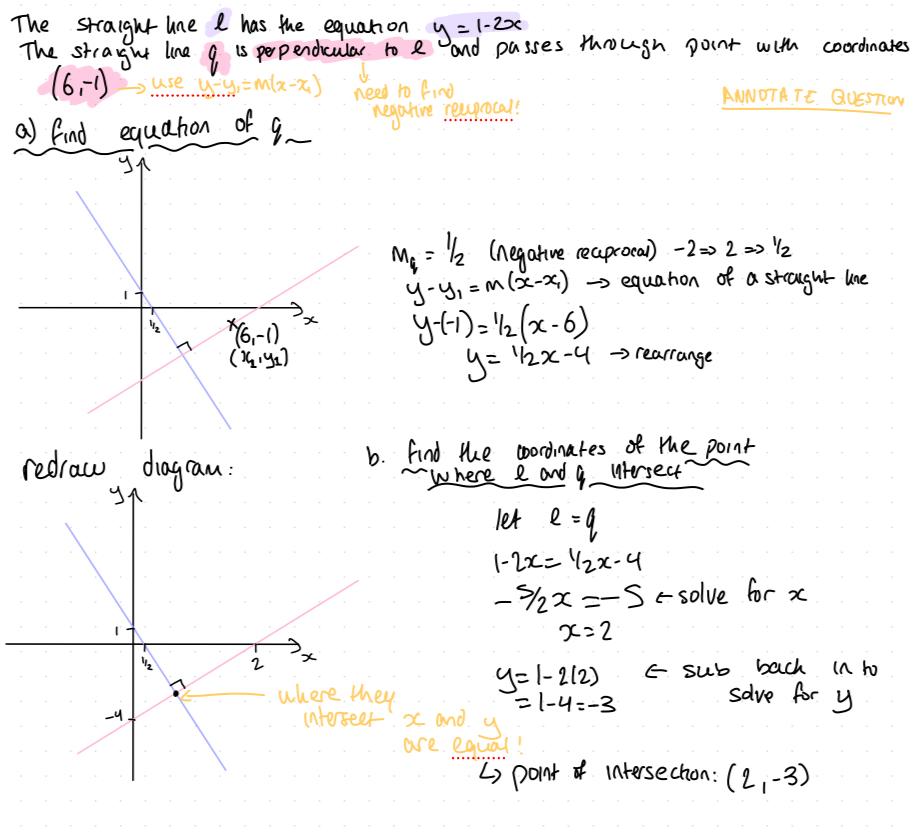 The straight line l has the equation y = 1-2x
The straight line q is perpendicular to l and passes through point with coordinates
(6,-1) → use y-y₁=m(x-x₁)
need to find
negative reciprocal!
ANNOTATE QUESTION
a) find equation of q
y
1
1/2
x
x
(6,-1)
(x₁,y₁)
M_q = 1/2 (negative reciprocal) -2 ⇒ 2 ⇒ 1/2
y-y₁ = m(x-x₁) → equation of a straight line
y-(-1) = 1/2(x-6)
y = 1/2x-4 → rearrange
redraw diagram:
y
1
1/2
2
x
-4
where they
intersect x and y
are equal!
b. find the coordinates of the point
where l and q intersect
let l = q
1-2x = 1/2x-4
-5/2x = -5 ← solve for x
x=2
y = 1-2(2) ← sub back in to
= 1-4 = -3 solve for y
↳ point of intersection: (2,-3)